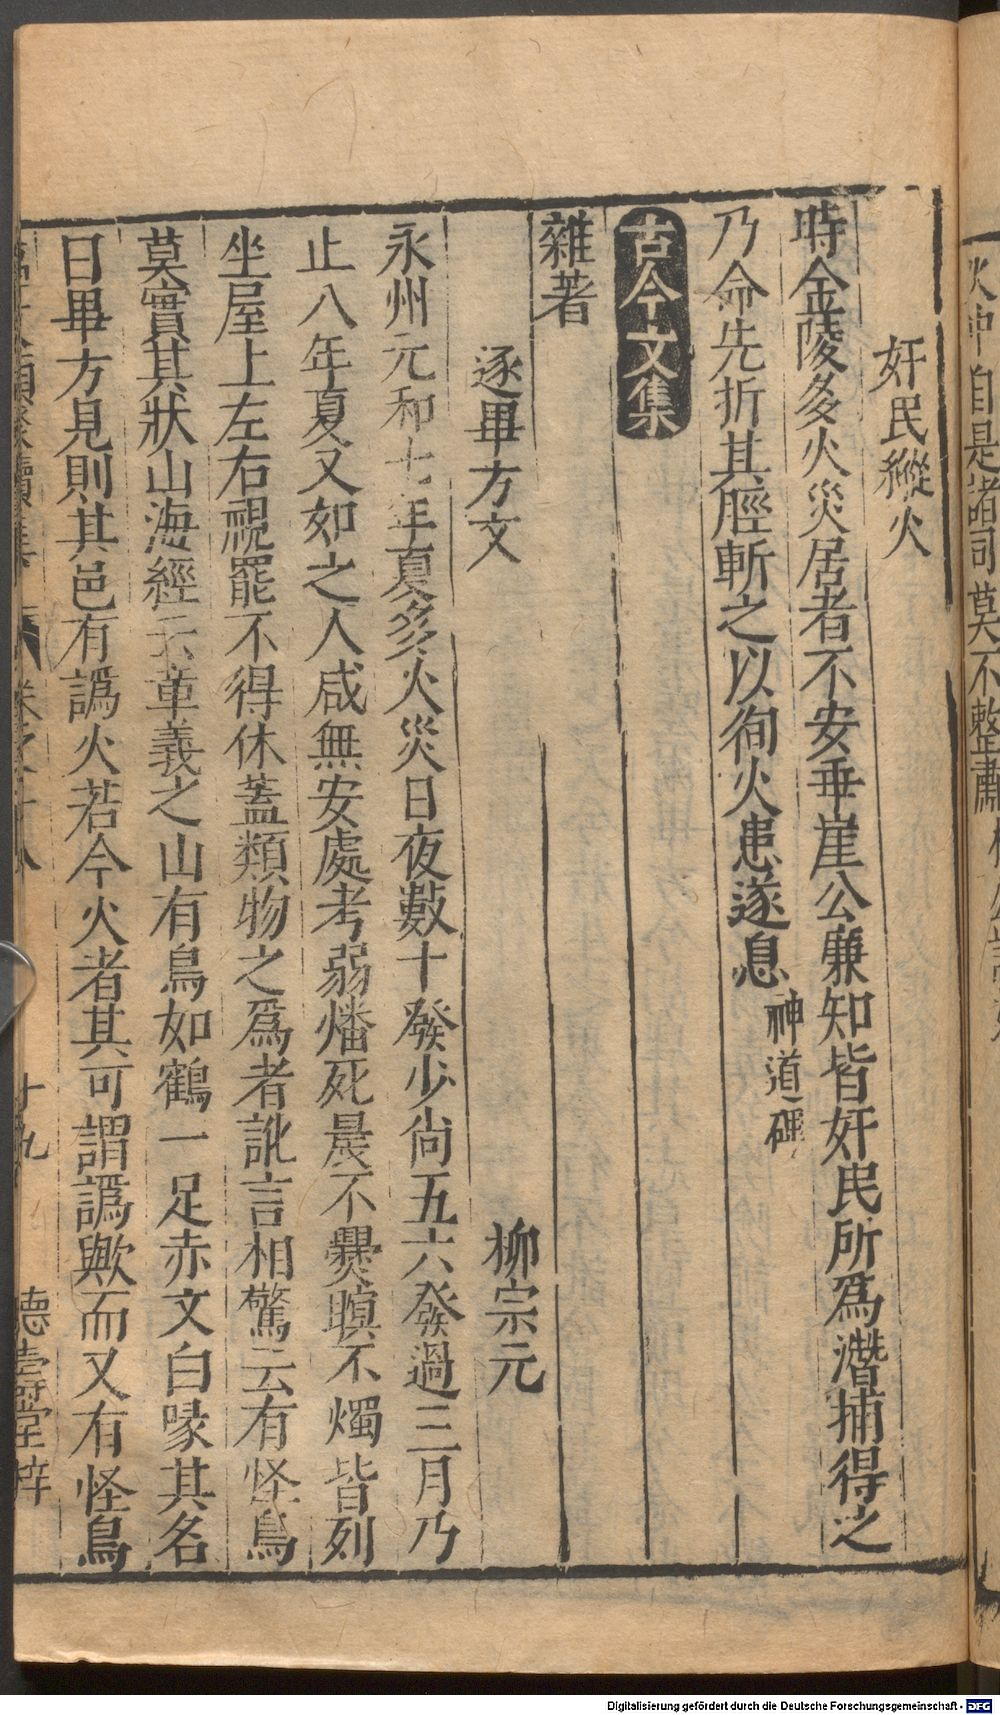 奸民縱火
時金陵多火災居者不安垂崖公廉知皆奸民所爲潛捕得之
乃命先折其脛斬之以徇火患遂息神道碑
古今文集
雜著
逐畢方文 柳宗元
永州元和七年夏多火災日夜數十發少尙五六發過三月乃
止八年夏又如之人咸無安處老弱燔死晨不爨暝不燭皆列
坐屋上左右視罷不得休蓋類物之爲者訛言相驚云有怪鳥
莫實其狀山海經云章義之山有鳥如鶴一足赤文白喙其名
曰畢方見則其邑有譌火若今火者其可謂譌歟而又有怪鳥
卷之十八 十九 德壽堂梓
自是諸司莫不整肅
Digitalisierung gefördert durch die Deutsche Forschungsgemeinschaft - DFG